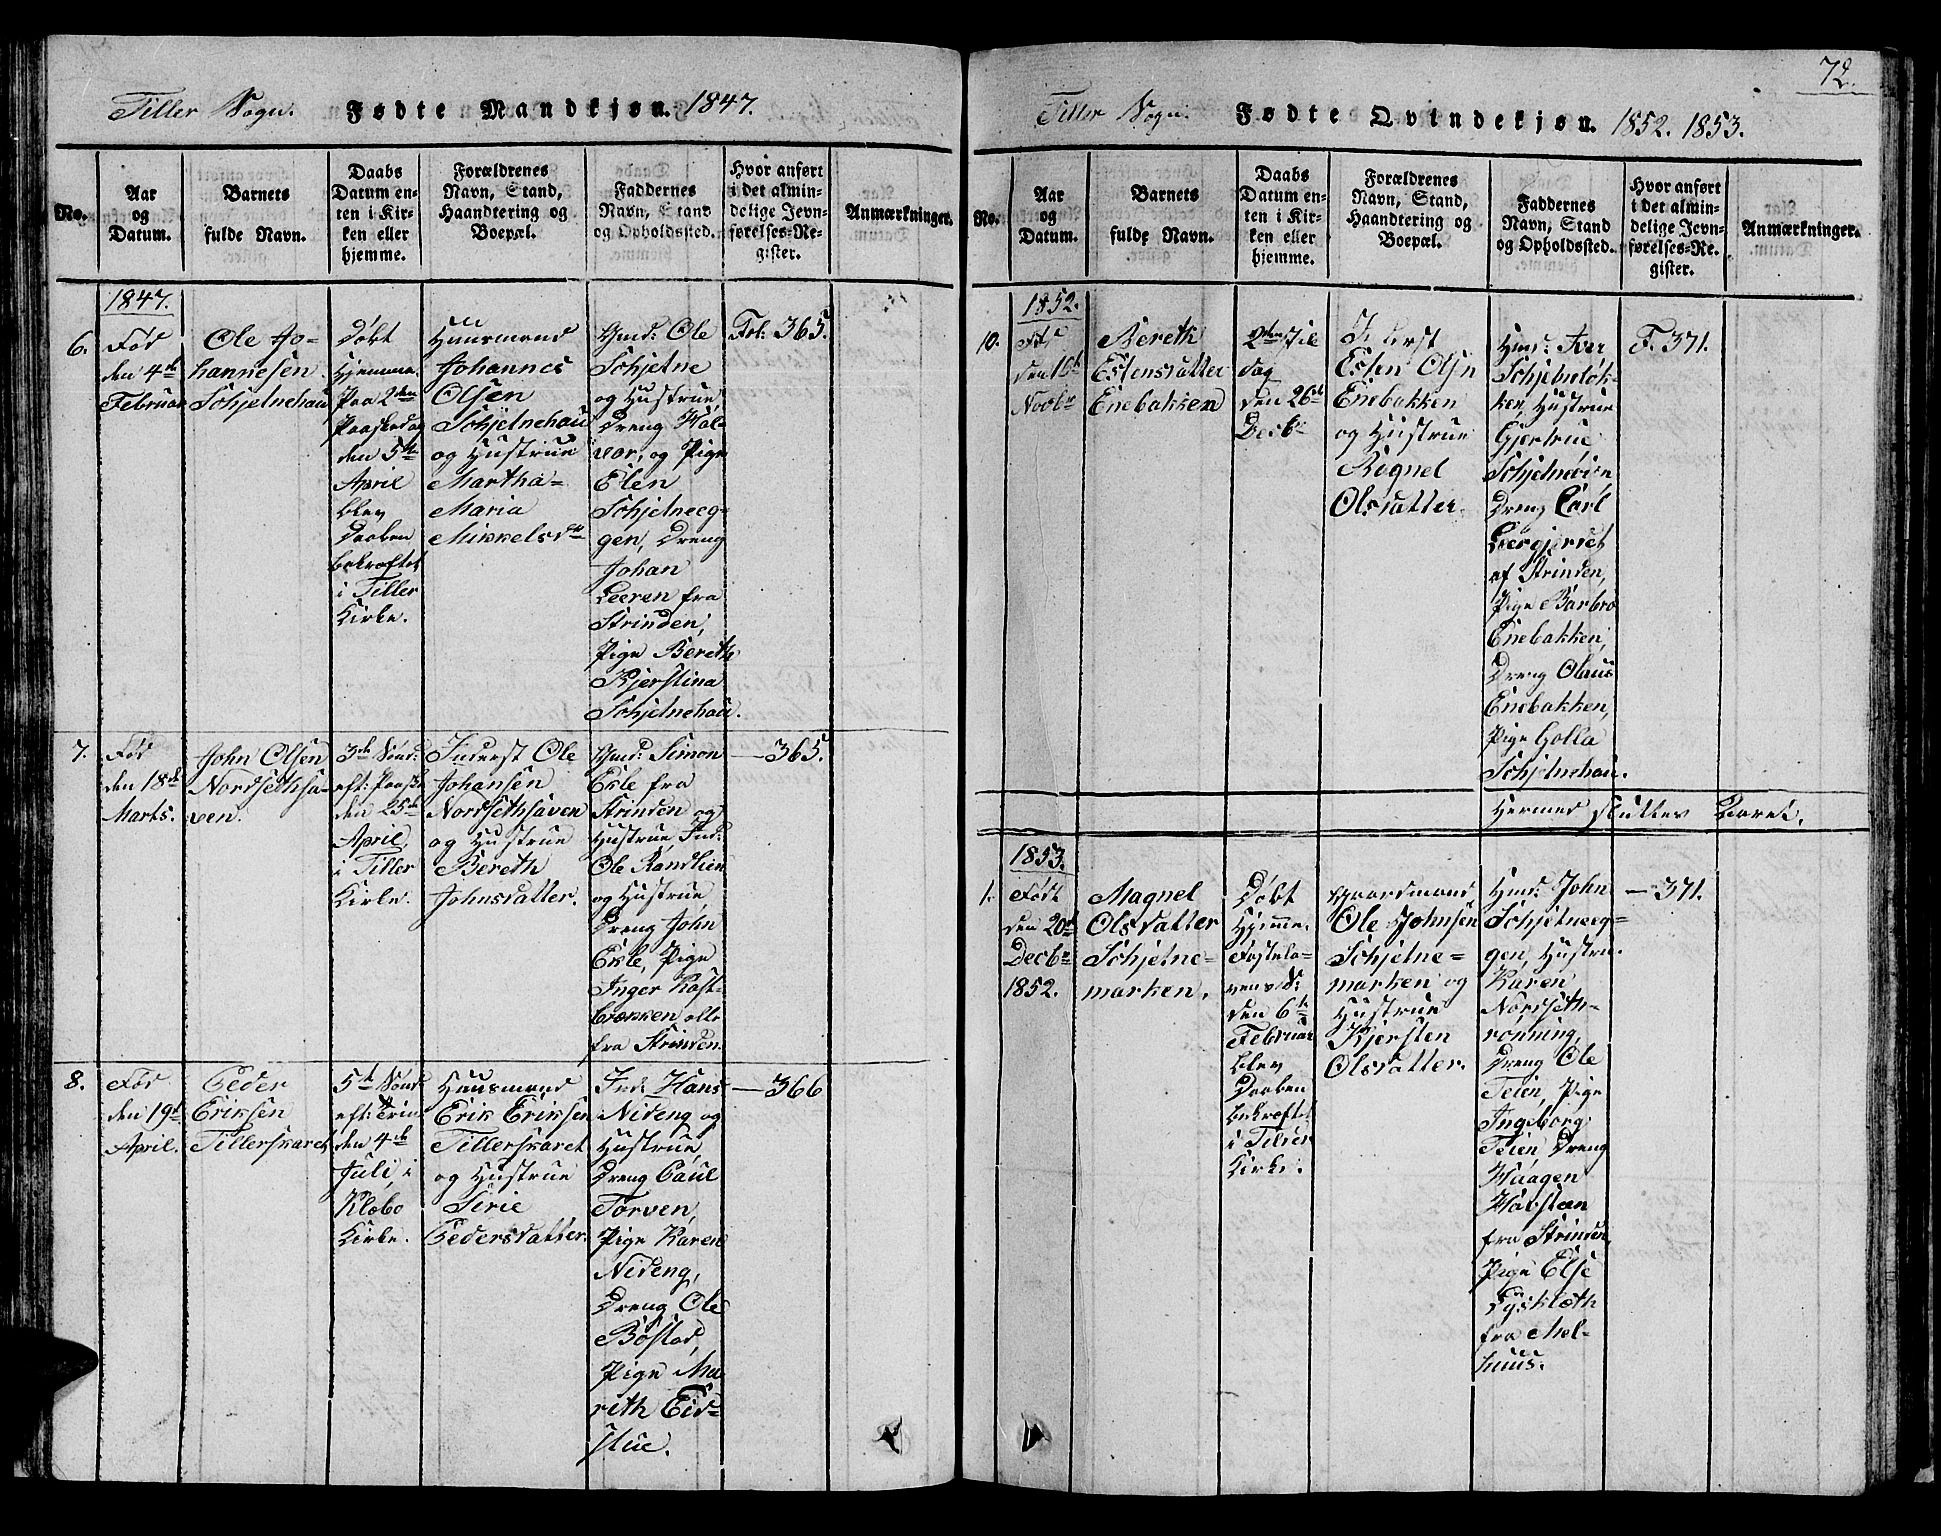 72.
Tiller Sogn. Fødte Mandkjøn. 1847.
No.
Aar
og
Datum.
Barnets
fulde Navn.
Daabs
Datum en-
ten i Kir-
ken eller
hjemme.
Forældrenes
Navn, Stand,
Haandtering og
Boepæl.
Faddernes
Navn, Stand
og Opholdssted.
Hvor anført
i det almin-
delige Jevn-
førelses-Re-
gister.
Anmærkninger.
1847.
6.
Fød
den 4de
Februar
Ole Jo-
hannesen
Schjetnehau
Døbt
Hjemme.
Paa 2den
Paaskedag
den 5te
April
blev
Daaben
bekræftet
i Tiller
Kirke.
Huusmand
Johannes
Olsen
Schjetnehau
og Hustrue
Martha-
Maria
Mikkelsdr
Gmd: Ole
Schjetne
og Hustrue,
Dreng Hal-
vor, og Pige
Elen
Schjetneeg-
gen, Dreng
Johan
Leeren fra
Strinden,
Pige Bereth
Kjerstina
Schjetnehau.
Fol: 365.
7.
Fød
den 18de
Marts.
John Olsen
Nordsethsa-
ven.
3de Sønd:
eft: Paaske
den 25de
April,
i Tiller
Kirke.
Inderst Ole
Johansen
Nordsethsaven
og Hustrue
Bereth
Johnsdatter.
Gmd: Simon
Ekle fra
Strinden og
Hustrue, Ind:
Ole Randlien
og Hustrue,
Dreng John
Ekle, Pige
Inger Kast-
brækken alle
fra Strinden.
— 365.
8.
Fød
den 19de
April.
Peder
Eriksen
Tillerskaret
5te Sønd
eft: Trin:
den 4de
Juli, i
Klæbo
Kirke.
Huusmand
Erik Eriksen
Tillerskaret
og Hustrue
Sirie
Pedersdatter.
Ind: Hans
Nideng og
Hustrue,
Dreng Paul
Torven,
Pige Karen
Nideng,
Dreng Ole
Bøstad,
Pige Ma-
rith Eid-
stue.
— 366
Tiller Sogn. Fødte Qvindekjøn. 1852. 1853.
No.
Aar
og
Datum.
Barnets
fulde Navn.
Daabs
Datum en-
ten i Kir-
ken eller
hjemme.
Forældrenes
Navn, Stand,
Haandtering og
Boepæl.
Faddernes
Navn, Stand
og Opholdssted.
Hvor anført
i det almin-
delige Jevn-
førelses-Re-
gister.
Anmærkninger.
1852.
10.
Fød
den 16de
Novbr
Bereth
Estensdatter
Enebakken
2den Jule
dag
den 26de
Decbr
Inderst
Esten Olsn
Enebakken
og Hustrue
Ragnel
Olsdatter.
Hmd: Iver
Schjetneløk-
ken, Hustrue
Gjertrue
Schjetneøien
Dreng Carl
Leergjerdet
af Strinden,
Pige Barbro
Enebakken,
Dreng Olaus
Enebakken,
Pige Golla
Schjetnehau.
F. 371.
Hermed sluttes Aaret.
1853.
1.
Født
den 20de
Decbr
1852.
Magnel
Olsdatter
Schjetne-
marken.
Døbt
Hjemme.
Fastela-
vens S:
den 6te
Februar
blev
Daaben
bekræftet
i Tiller
Kirke.
Gaardmand
Ole Johnsen
Schjetne-
marken og
Hustrue
Kjersten
Olsdatter.
Hmd: John
Schjetneeg-
gen, Hustru.
Karen
Nordseth-
rønning,
Dreng Ole
Teien, Pige
Ingeborg
Teien Dreng
Haagen
Havsteen
fra Strinden,
Pige Else
fra Mel-
huus.
— 371.